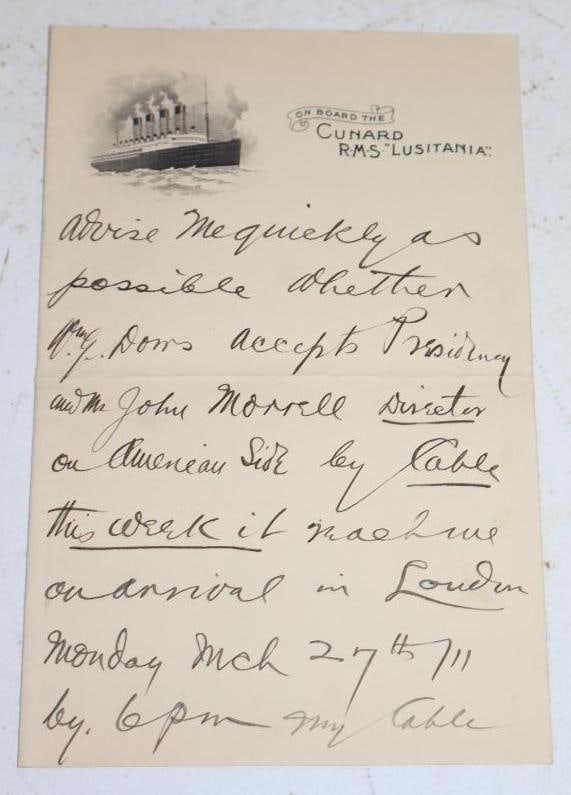 ON BOARD THE
CUNARD
R·M·S· "LUSITANIA".
Advise Me quickly as
possible whether
Wm G. Dows accepts Presidency
and Mr John Morrell Director
on American Side by Cable
this week it reach me
on arrival in London
Monday Mch 27th/11
by. 6 pm my Cable